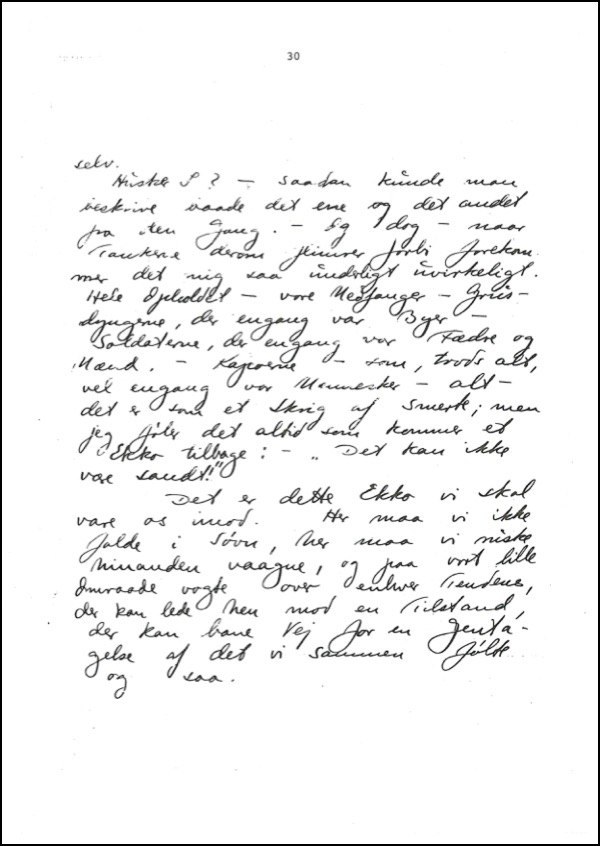 30
selv.
Husker I? – saadan kunde man
beskrive baade det ene og det andet
fra den Gang. – Og dog – naar
Tankerne derom flimrer forbi forekom
mer det mig saa underligt uvirkeligt.
Hele Opholdet – vore Medfanger – Grus-
dyngerne, der engang var Byer –
Soldaterne, der engang var Fædre og
Mænd. – Kapoerne – som, trods alt,
vel engang var Mennesker – alt –
det er som et Skrig af Smerte; men
jeg føler det altid som kommer et
Ekko tilbage: – „Det kan ikke
være sandt!"
Det er dette Ekko vi skal
vare os imod. Her maa vi ikke
falde i Søvn, her maa vi ruske
hinanden vaagne, og paa vort lille
Omraade vogte over enhver Tendens,
der kan lede hen mod en Tilstand,
der kan bane Vej for en Genta-
gelse af det vi sammen følte
og saa.